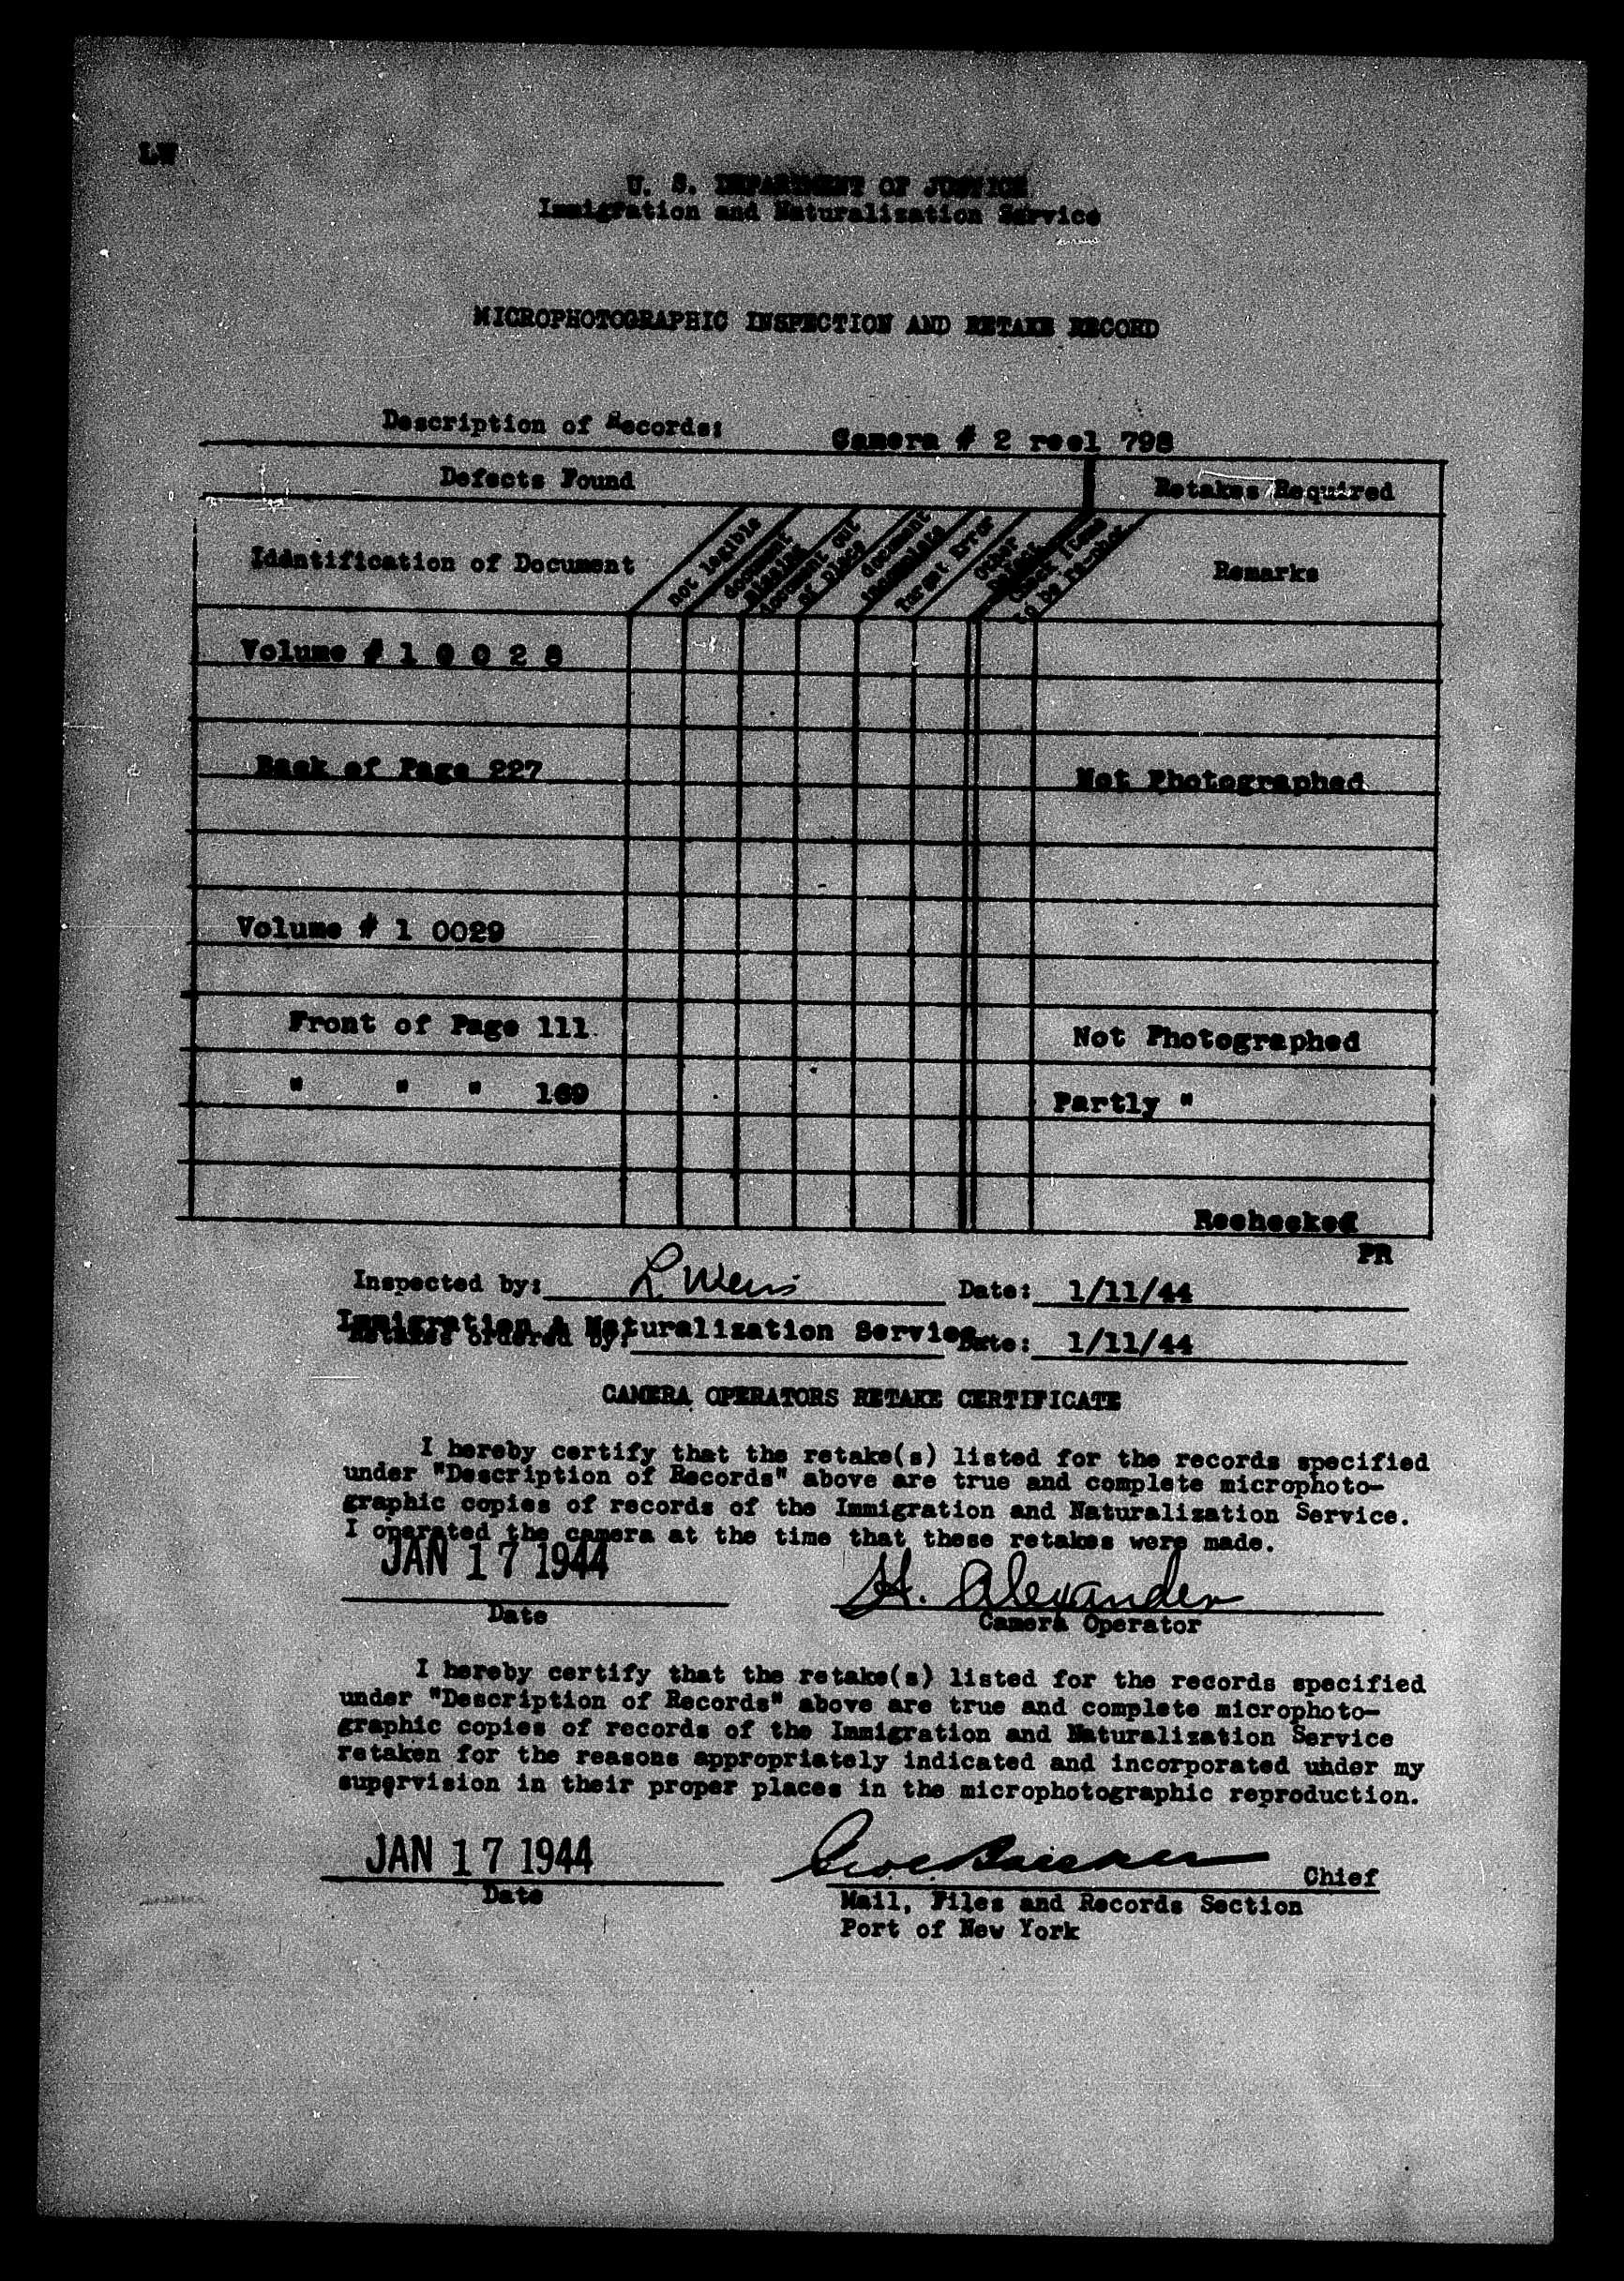 LW
U. S. DEPARTMENT OF JUSTICE
Immigration and Naturalization Service
MICROPHOTOGRAPHIC INSPECTION AND RETAKE RECORD
Description of Records: Camera # 2 reel 798
Defects Found Retakes Required
Identification of Document
not legible
document missing
document out of place
document incomplete
Target Error
Other
Check items to be re-shot
Remarks
Volume # 1 0 0 2 8
Back of Page 227 Not Photographed
Volume # 1 0029
Front of Page 111 Not Photographed
" " " 169 Partly "
Rechecked
PR
Inspected by: L. Weis Date: 1/11/44
Immigration & Naturalization Service
Retakes ordered by: Date: 1/11/44
CAMERA OPERATORS RETAKE CERTIFICATE
I hereby certify that the retake(s) listed for the records specified
under "Description of Records" above are true and complete microphoto-
graphic copies of records of the Immigration and Naturalization Service.
I operated the camera at the time that these retakes were made.
JAN 17 1944 H. Alexander
Date Camera Operator
I hereby certify that the retake(s) listed for the records specified
under "Description of Records" above are true and complete microphoto-
graphic copies of records of the Immigration and Naturalization Service
retaken for the reasons appropriately indicated and incorporated under my
supervision in their proper places in the microphotographic reproduction.
JAN 17 1944 Chief
Date Mail, Files and Records Section
Port of New York